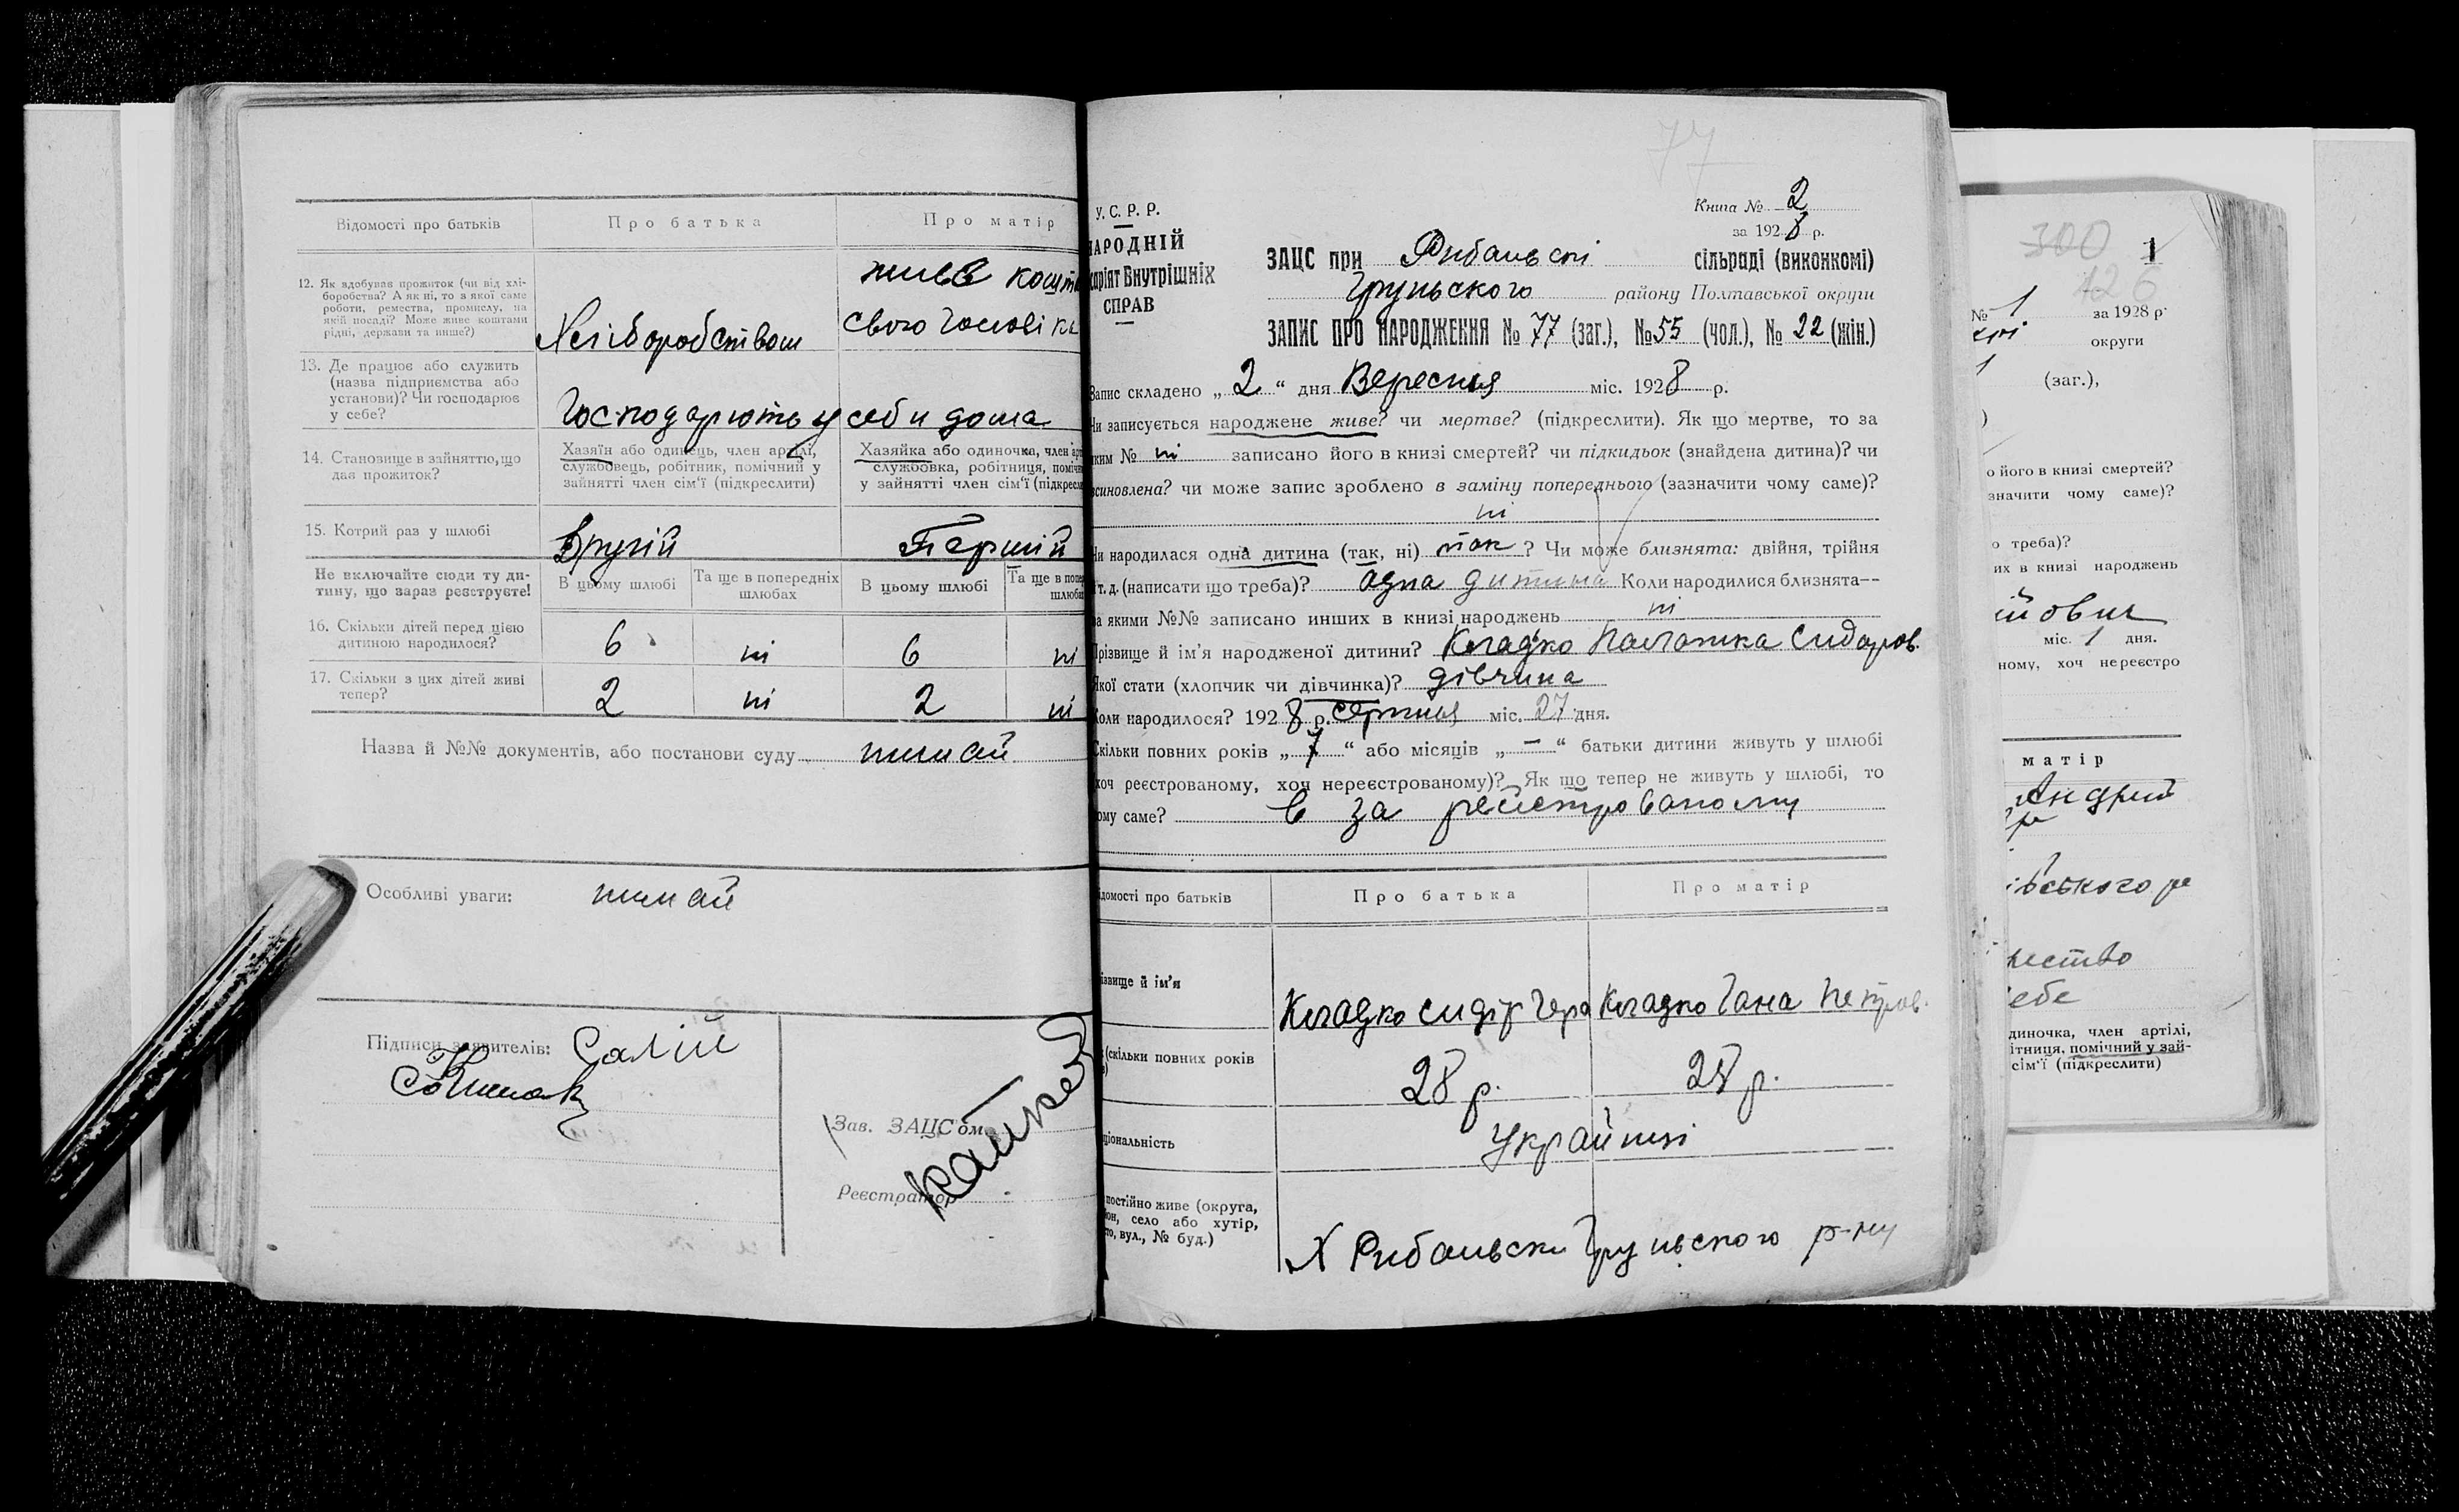 Відомості про батьків
Про батька
Про матір
12. Як здобуває прожиток (чи від хлі-
боробства? А як ні, то з якої саме
роботи, ремества, промислу, на
якій посаді? Може живе коштами
рідні, держави та инше?)
Хліборобством
живе кошта
свого чоловіка
13. Де працює або служить
(назва підприємства або
установи)? Чи господарює
у себе?
Господарють у себи дома
14. Становище в зайняттю, що
дає прожиток?
Хазяїн або одинець, член артілі,
службовець, робітник, помічний у
зайнятті член сім'ї (підкреслити)
Хазяйка або одиночка, член арт
службовка, робітниця, помічн
у зайнятті член сім'ї (підкресл
15. Котрий раз у шлюбі
Другій
Першій
Не включайте сюди ту ди-
тину, що зараз реєструєте!
В цьому шлюбі
Та ще в попередніх
шлюбах
В цьому шлюбі
Та ще в попе
шлюбах
16. Скільки дітей перед цією
дитиною народилося?
6 ні 6 ні
17. Скільки з цих дітей живі
тепер?
2 ні 2 ні
Назва й №№ документів, або постанови суду нимай
Особливі уваги: нимай
Підписи заявителів: Салій
Зав. ЗАЦС'ом
Реєстратор
77
У. С. Р. Р.
НАРОДНІЙ
саріят Внутрішніх
СПРАВ
Книга № 2
за 1928 р.
ЗАЦС при Рибальскі сільраді (виконкомі)
Груньского району Полтавської округи
ЗАПИС ПРО НАРОДЖЕННЯ № 77 (заг.), № 55 (чол.), № 22 (жін.)
Запис складено „ 2 “ дня Вересня міс. 1928 р.
Чи записується народжене живе? чи мертве? (підкреслити). Як що мертве, то за
яким № ні записано його в книзі смертей? чи підкидьок (знайдена дитина)? чи
всиновлена? чи може запис зроблено в заміну попереднього (зазначити чому саме)?
ні
Чи народилася одна дитина (так, ні) так ? Чи може близнята: двійня, трійня
т. д. (написати що треба)? одна дитина Коли народилися близнята—
за якими №№ записано инших в книзі народжень ні
Прізвище й ім'я народженої дитини? Кладко Палажка Сидоров.
Якої стати (хлопчик чи дівчинка)? дівчина
Коли народилося? 1928 р. серпня міс. 27 дня.
Скільки повних років „ 7 “ або місяців „ — “ батьки дитини живуть у шлюбі
хоч реєстрованому, хоч нереєстрованому)? Як що тепер не живуть у шлюбі, то
чому саме? в за рейстрованому
ідомості про батьків
Про батька
Про матір
ізвище й ім'я
Кладко Сидір Гера
Кладко Гана Петров.
(скільки повних років
28 р.
28 р.
ціональність
Українці
постійно живе (округа,
он, село або хутір,
то, вул., № буд.)
Х Рибальски Груньского р-ну
300
126
1
№ 1 за 1928 р.
округи
1
(заг.),
)
о його в книзі смертей?
значити чому саме)?
о треба)?
их в книзі народжень
міс. 1 дня.
ному, хоч нереєстро
матір
івського р
себе
диночка, член артілі,
ітниця, помічний у зай-
сім'ї (підкреслити)